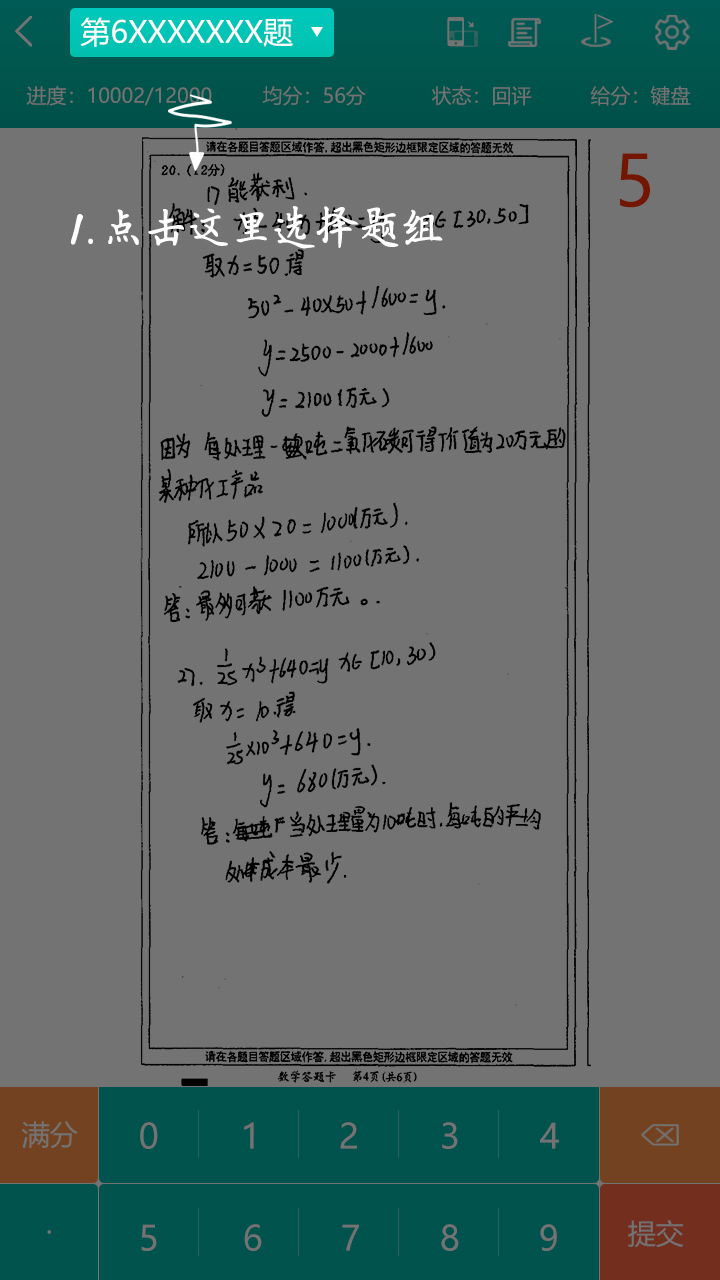 第6XXXXXXX题
进度：10002/12000 均分：56分 状态：回评 给分：键盘
请在各题目答题区域作答，超出黑色矩形边框限定区域的答题无效
5
20.（12分）
能获利.
1.点击这里选择题组
∈[30,50]
取x=50得
50²-40×50+1600=y.
y=2500-2000+1600
y=2100(万元)
因为 每处理一吨二氧化碳可得价值为20万元的
某种化工产品
所以50×20=1000(万元).
2100-1000=1100(万元).
答:最多可获 1100万元。.
27. 1/25 x³+640=y x∈[10,30)
取x=10.得
1/25×10³+640=y.
y=680(万元).
答: 当处理量为10吨时.每吨的平均
成本最少.
请在各题目答题区域作答，超出黑色矩形边框限定区域的答题无效
数学答题卡 第4页(共6页)
满分 0 1 2 3 4
. 5 6 7 8 9 提交